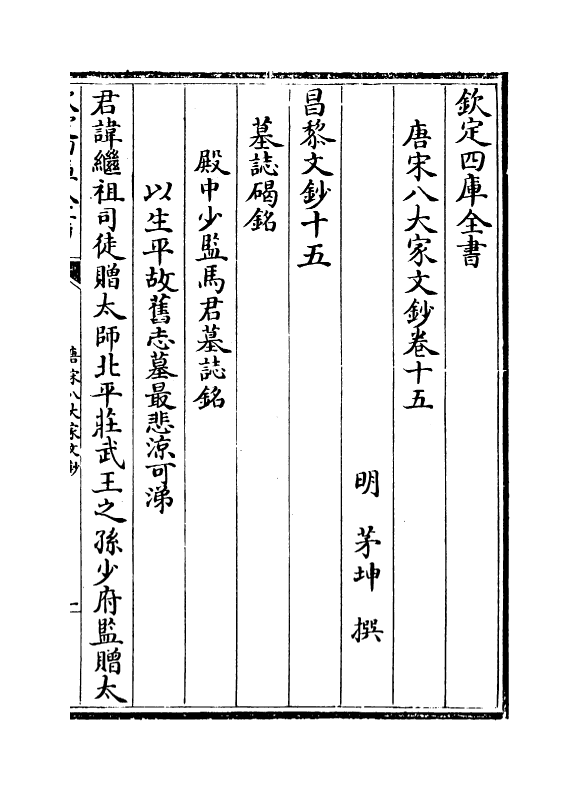 欽定四庫全書
唐宋八大家文鈔卷十五
明 茅坤 撰
昌黎文鈔十五
墓誌碣銘
殿中少監馬君墓誌銘
以生平故舊志墓最悲涼可涕
君諱繼祖司徒贈太師北平莊武王之孫少府監贈太
唐宋八大家文鈔
一